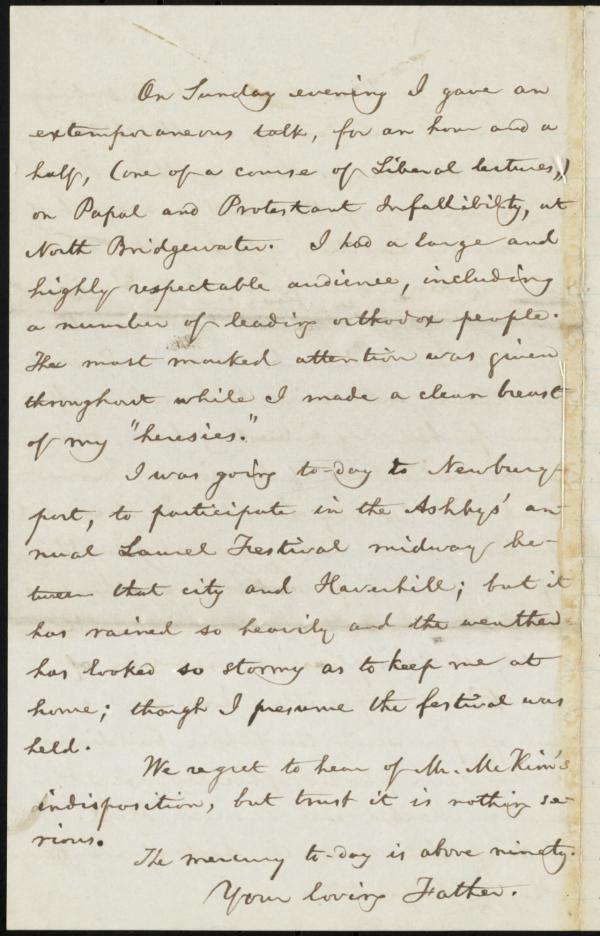 On Sunday evening I gave an
extemporaneous talk, for an hour and a
half, (one of a course of Liberal lectures,)
on Papal and Protestant Infallibility, at
North Bridgewater. I had a large and
highly respectable audience, including
a number of leading orthodox people.
The most marked attention was given
throughout while I made a clean breast
of my "heresies."
I was going to-day to Newbury-
port, to participate in the Ashbys' an-
nual Laurel Festival midway be-
tween that city and Haverhill; but it
has rained so heavily and the weather
has looked so stormy as to keep me at
home; though I presume the festival was
held.
We regret to hear of Mr. McKim's
indisposition, but trust it is nothing se-
rious.
The mercury to-day is above ninety.
Your loving Father.